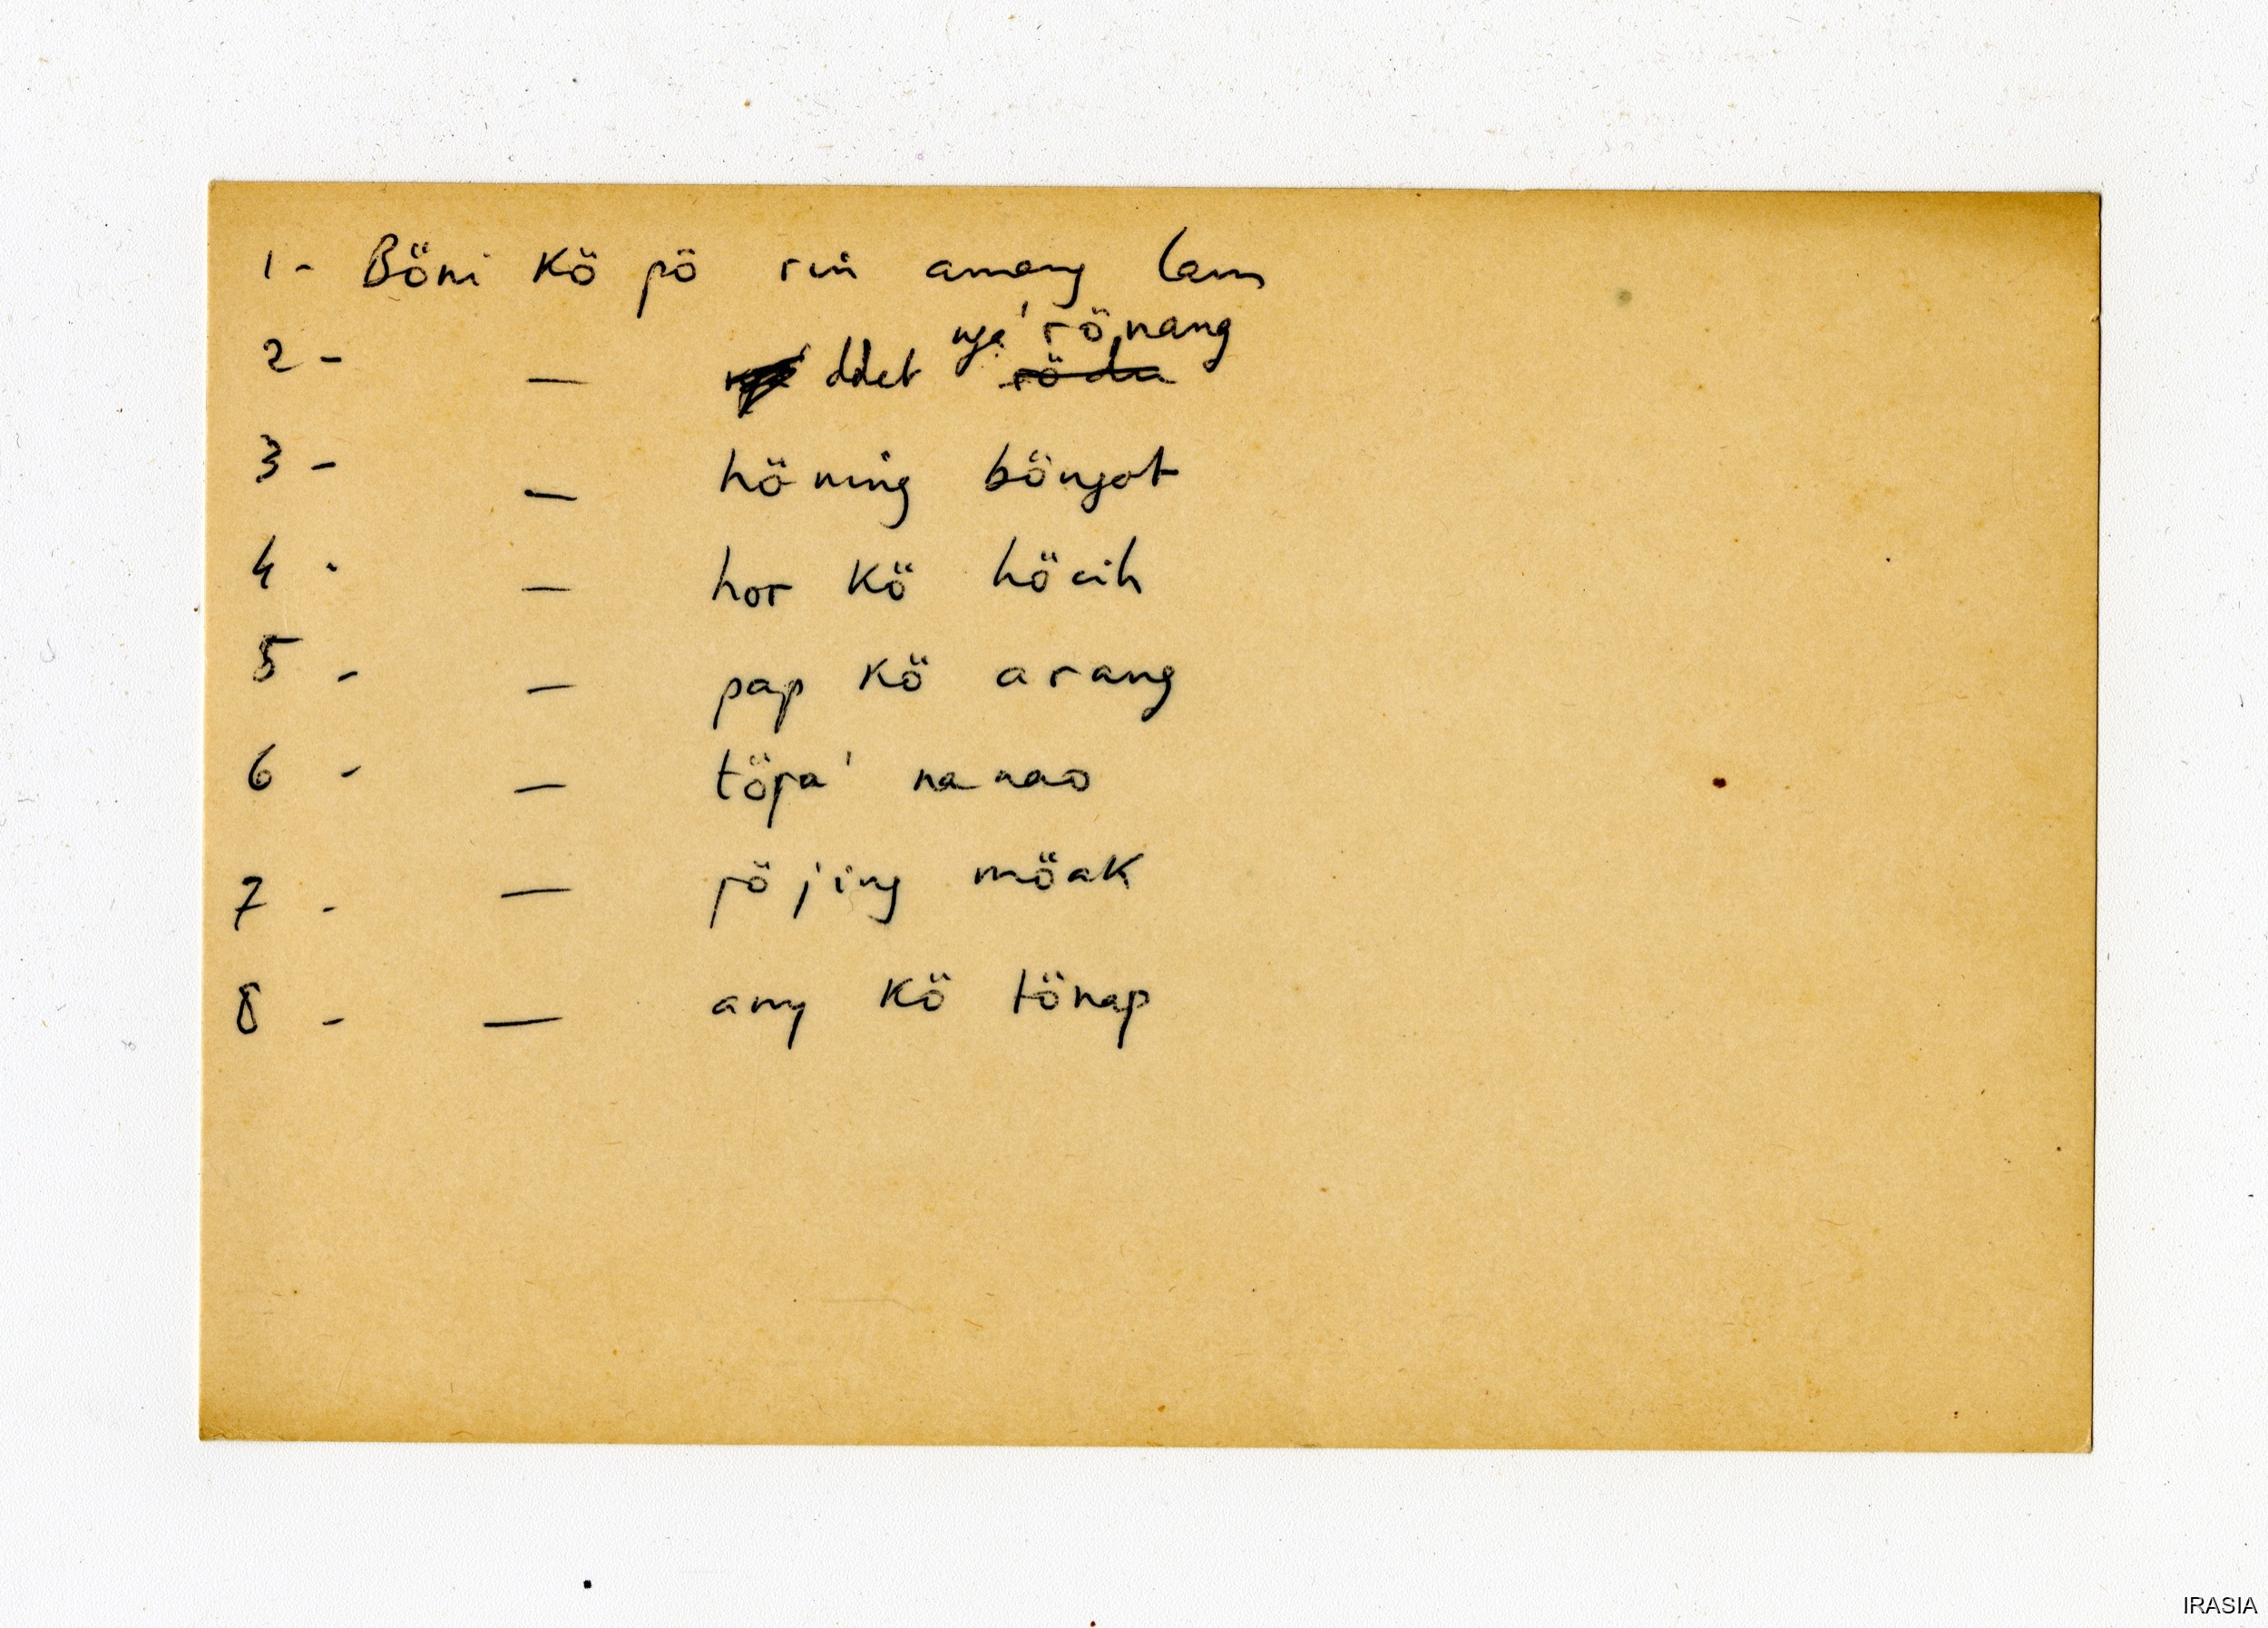 1 - Böni Kö pö rin amang lam
ngá rönang
2 - — ddet röda
3 - — höning böngot
4 - — hor Kö höcih
5 - — pap Kö arang
6 - — töpa' nanao
7 - — pöjing möak
8 - — any Kö tönap
IRASIA